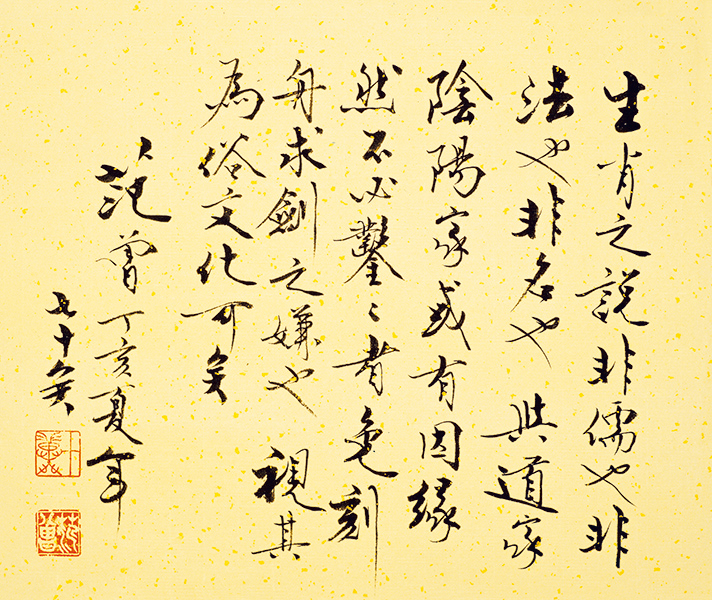 生肖之說非儒也非
法也非名也與道家
陰陽家或有因緣
然不必鑿〻者免刻
舟求劍之嫌也視其
為俗文化可矣
范曾丁亥夏年
七十矣
范曾